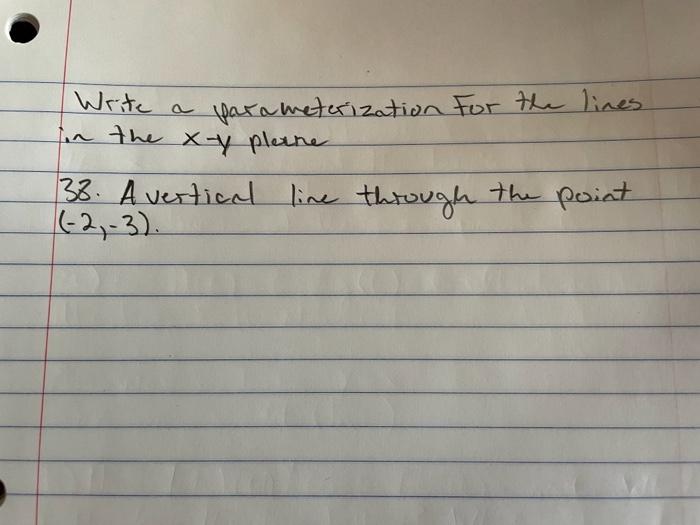 Write a parameterization For the lines
in the x-y plane
38. A vertical line through the point
(-2,-3).